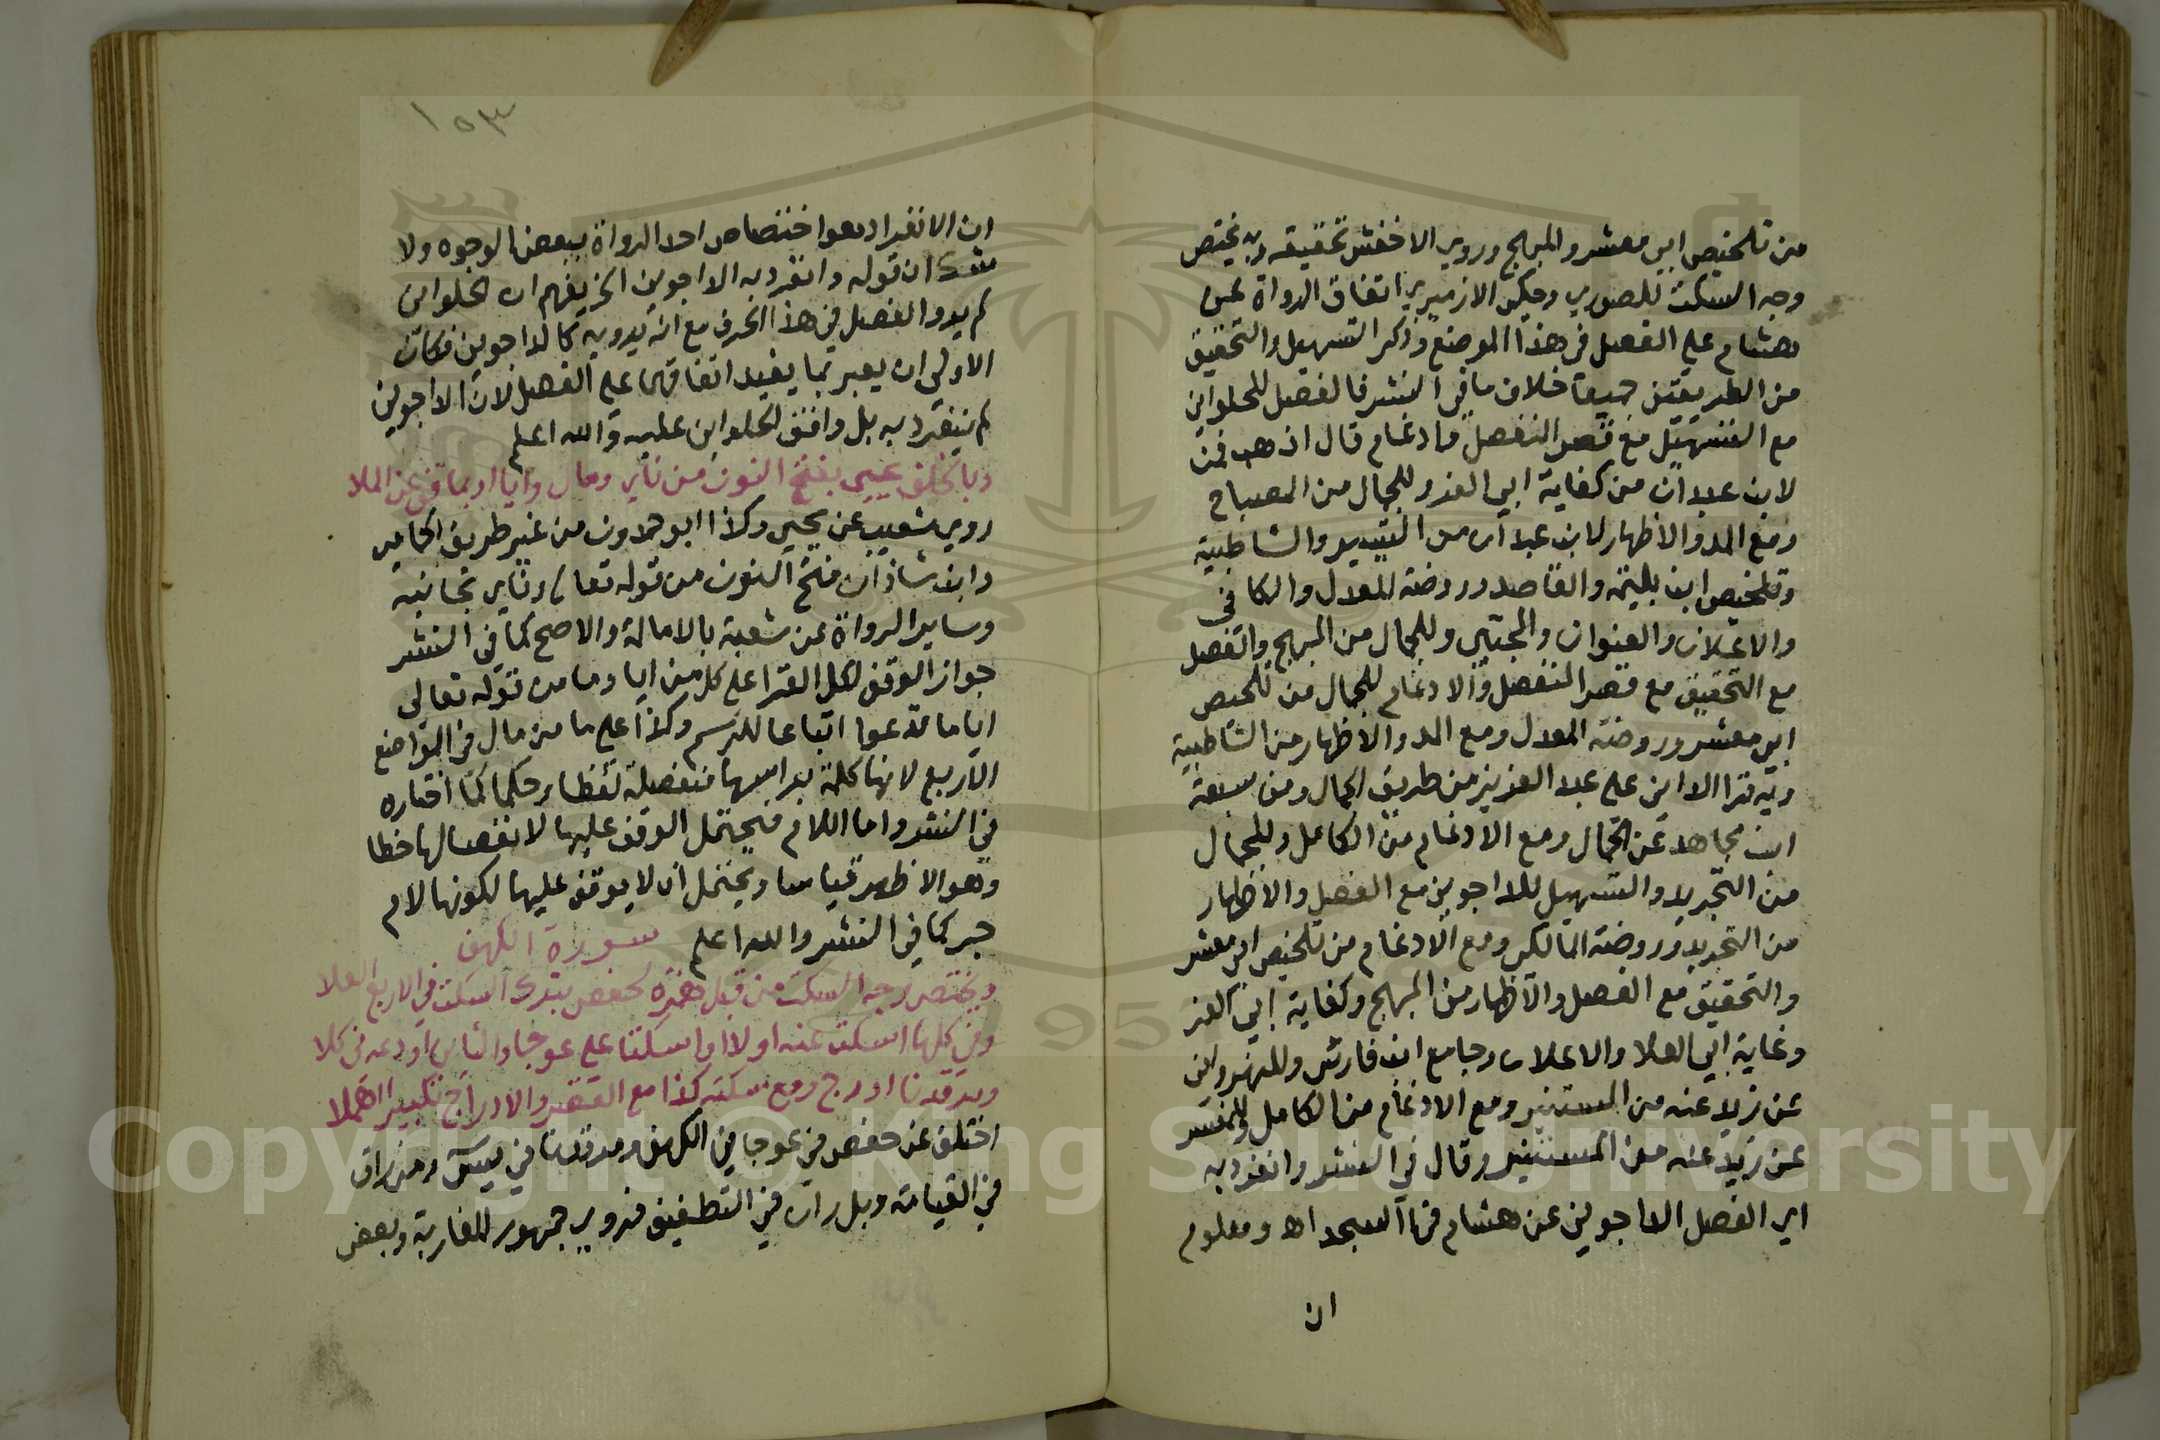 من تلخيص ابي معشر والمبهج وروي الاخفش تحقيقه وبه يختص
وجه السكت للصوري وحكى الازميري اتفاق الرواة عن
هشام على الفصل في هذا الموضع وذكر التسهيل والتحقيق
من الطريقين جميعا خلاف ما في النشر فالفصل للحلواني
مع التسهيل مع قصر المنفصل وادغام قال اذهب فمن
لابن عبدان من كفاية ابي العز وللجمال من المصباح
ومع المد والاظهار لابن عبدان من التيسير والشاطبية
وتلخيص ابن بليمة والقاصد وروضة المعدل والكافي
والاعلان والعنوان والمجتبى وللجمال من المبهج والفصل
مع التحقيق مع قصر المنفصل والادغام للجمال من تلخيص
ابي معشر وروضة المعدل ومع المد والاظهار من الشاطبية
وبه قرا الداني على عبد العزيز من طريق الجمال ومن سبعة
ابن مجاهد عن الجمال ومع الادغام من الكامل وللجمال
من التجريد والتسهيل للداجوني مع الفصل والاظهار
من التجريد وروضة المالكي ومع الادغام من تلخيص ابي معشر
والتحقيق مع الفصل والاظهار من المبهج وكفاية ابي العز
وغاية ابي العلا والاعلان وجامع ابن فارس وللنهرواني
عن زيد عنه من المستنير ومع الادغام من الكامل وللمفسر
عن زيد عنه من المستنير وقال في النشر وانفرد به
اي الفصل الداجوني عن هشام في ااسجد اه ومعلوم
ان
١٥٣
ان الانفراد هو اختصاص احد الرواة ببعض الوجوه ولا
شك ان قوله وانفرد به الداجوني الخ يفهم ان الحلواني
لم يرو الفصل في هذا الحرف مع انه يرويه كالداجوني فكان
الاولى ان يعبر بما يفيد اتفاقهما على الفصل لان الداجوني
لم ينفرد به بل وافق الحلواني عليه والله اعلم
وبالخلف عيسى بفتح النون من ناي ومال وايا او بما قف عن الملا
روي شعيب عن يحيى وكذا ابو حمدون من غير طريق الحمامي
وابن شاذان فتح النون من قوله تعالى وناي بجانبه
وساير الرواة عن شعبة بالامالة والاصح كما في النشر
جواز الوقف لكل القرا على كل من ايا وما من قوله تعالى
اياما تدعوا اتباعا للرسم وكذا على ما من مال في المواضع
الاربع لانها كلمة براسها منفصلة لفظا وحكما كما اختاره
في النشر واما اللام فيحتمل الوقف عليها لانفصالها خطا
وهو الاظهر قياسا ويحتمل ان لا يوقف عليها لكونها لام
جر كما في النشر والله اعلم سورة الكهف
ويختص وجه السكت من قبل همزة لحفص بترك السكت في الاربع العلا
وفي كلها اسكت عنه اولا او اسكتا على عوجا والثاني اودعه في كلا
ومرقدنا ادرج ومع سكته كذا مع القصر والادراج تكبيرا اهملا
اختلف عن حفص في عوجا في الكهف ومرقدنا في يس ومن راق
في القيامة وبل ران في التطفيف فروي جمهور المغاربة وبعض